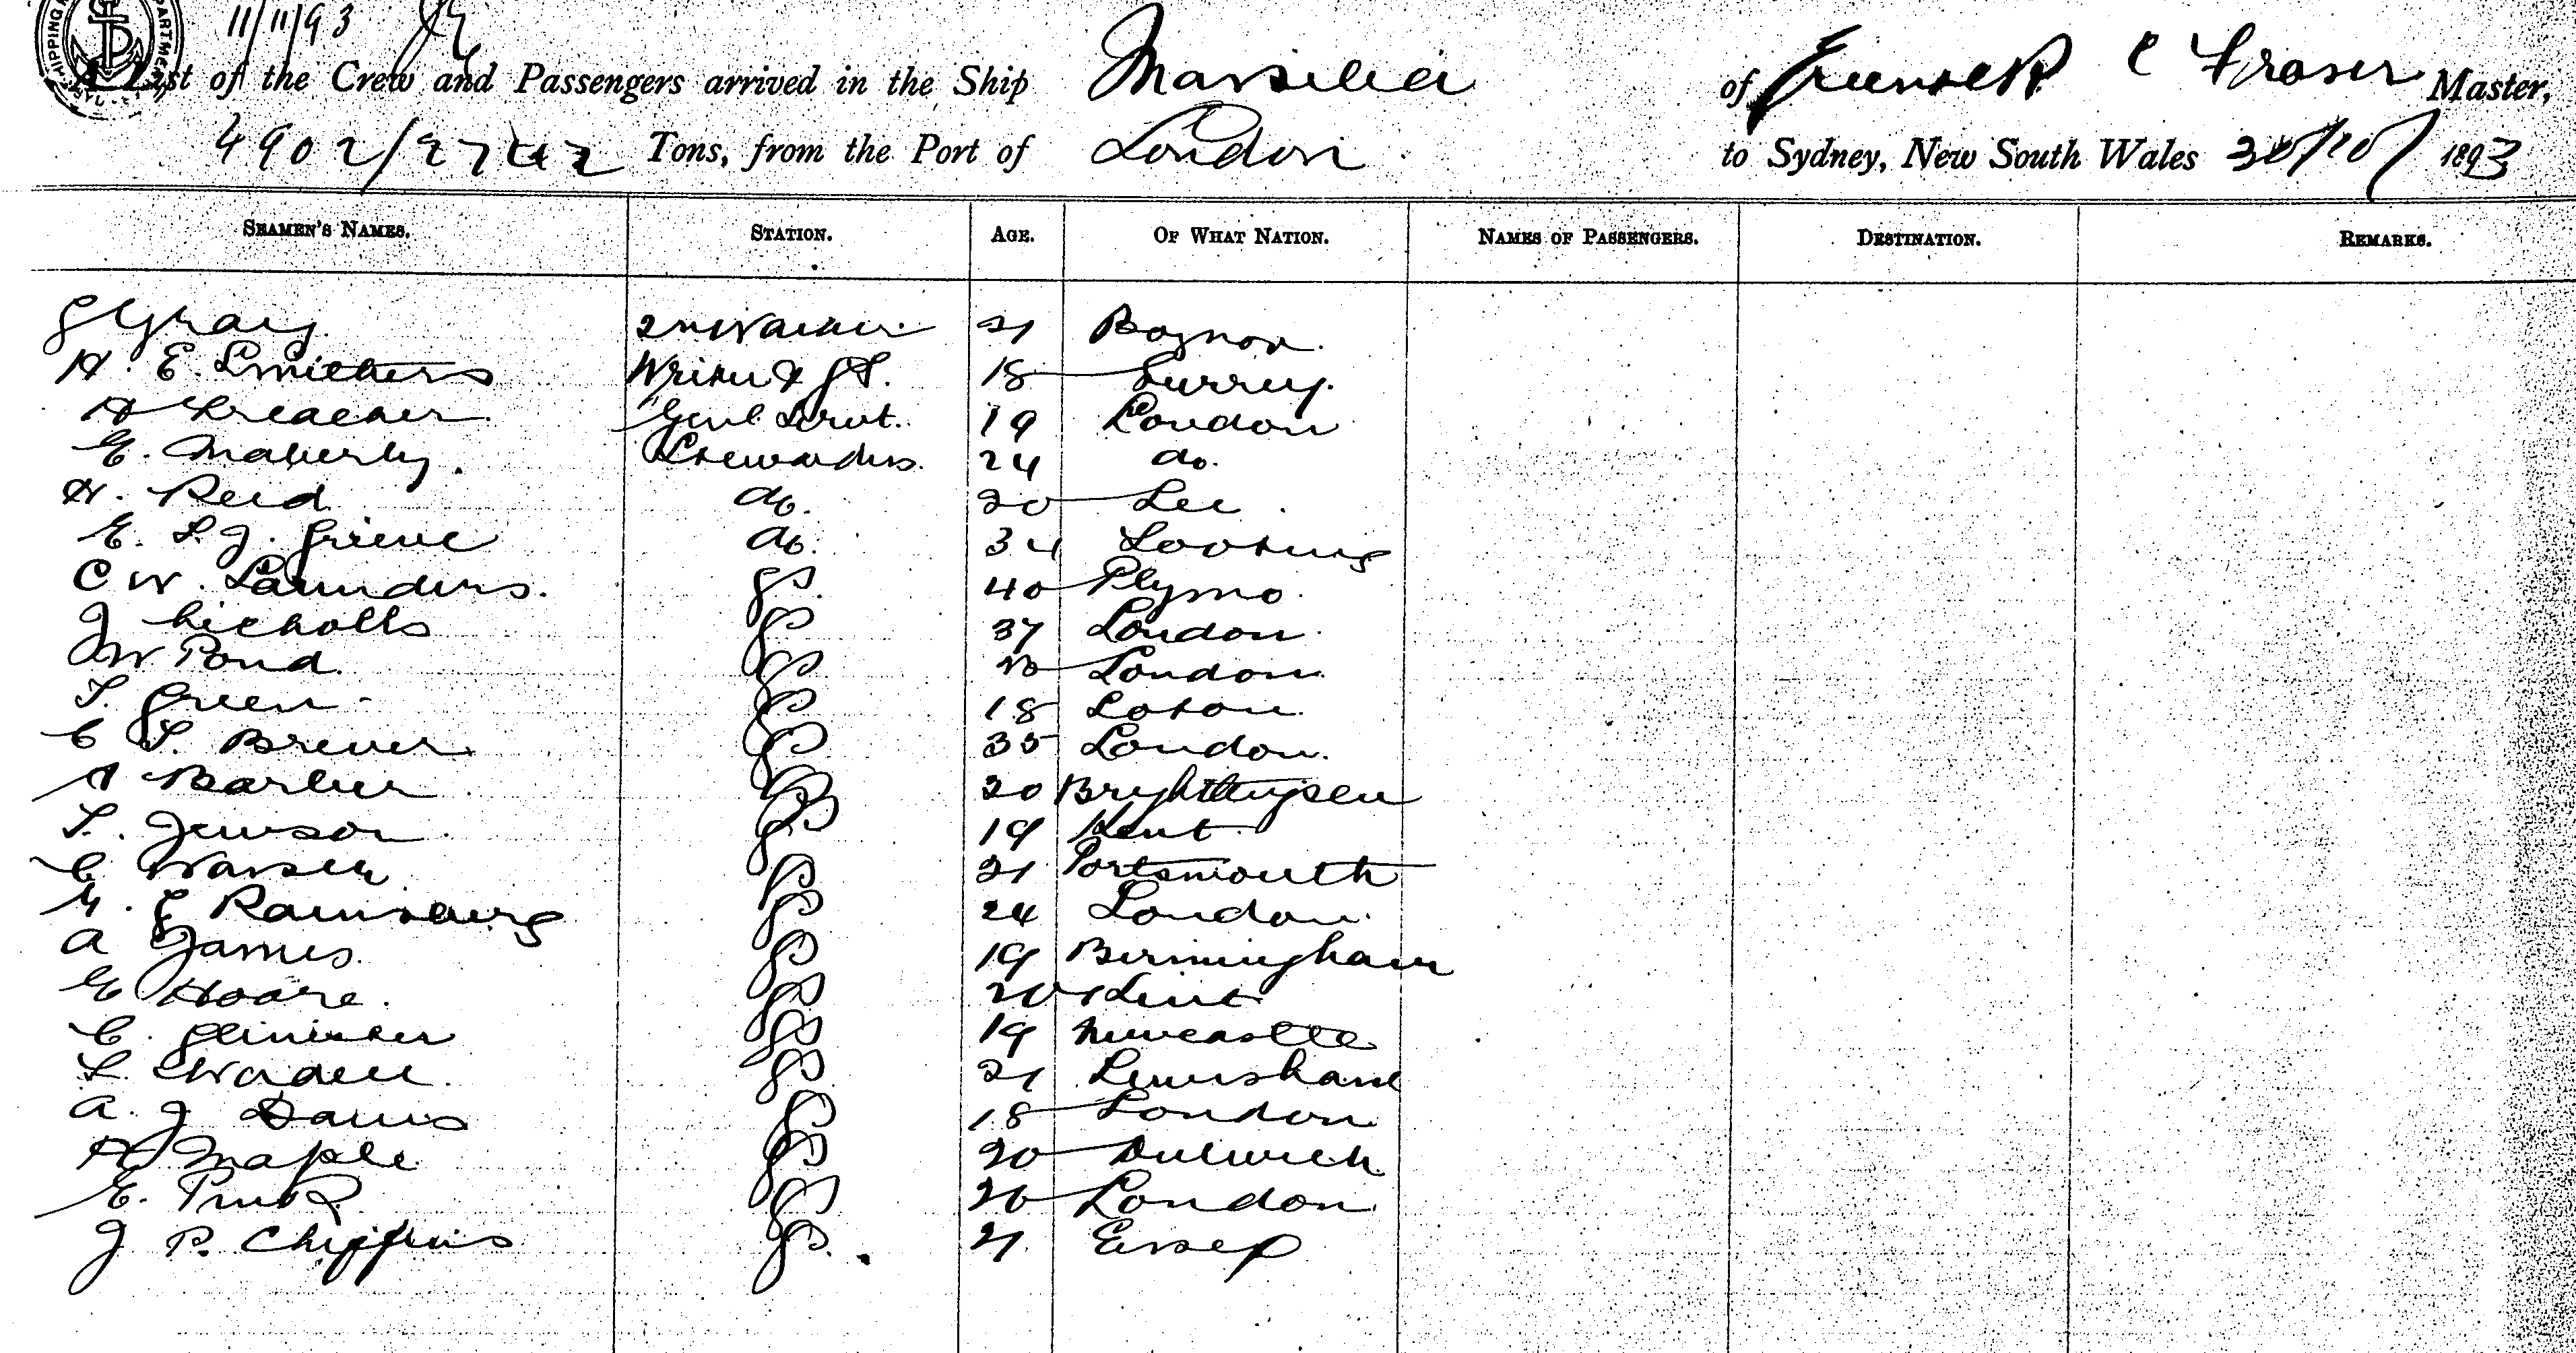 SHIPPING DEPARTMENT
11/11/93
A List of the Crew and Passengers arrived in the Ship Massilia of Greenock C Fraser Master,
4902/ Tons, from the Port of London to Sydney, New South Wales 30/10/ 1893
SEAMEN'S NAMES. STATION. AGE. OF WHAT NATION. NAMES OF PASSENGERS. DESTINATION. REMARKS.
21 Bognor.
H. E. Smithers Writer & GS. 18 Surrey.
H Genl Servt. 19 London
E. Maberly. Stewardess. 24 do.
H. Reid do. 20 Lee
E. S. J. Grieve do. 34 Tooting
C W. Saunders. GS. 40 Plymo
J Nicholls GS 37 London
J W Pond GS 20 London
T. Green GS 18
C T. Brewer GS 35 London.
A Barber GS 20 Brightlingsea
T. Jewson GS 19 Kent
C GS 21 Portsmouth
GS 24 London.
A James. GS 19 Birmingham
E Hoare. GS 20 Kent
C. GS 19 Newcastle
GS 21 Lewisham
A. J Davis GS 18 London
H Maple GS 20 Dulwich
E. GS 20 London
J P. Chiffins GS. 21 Essex